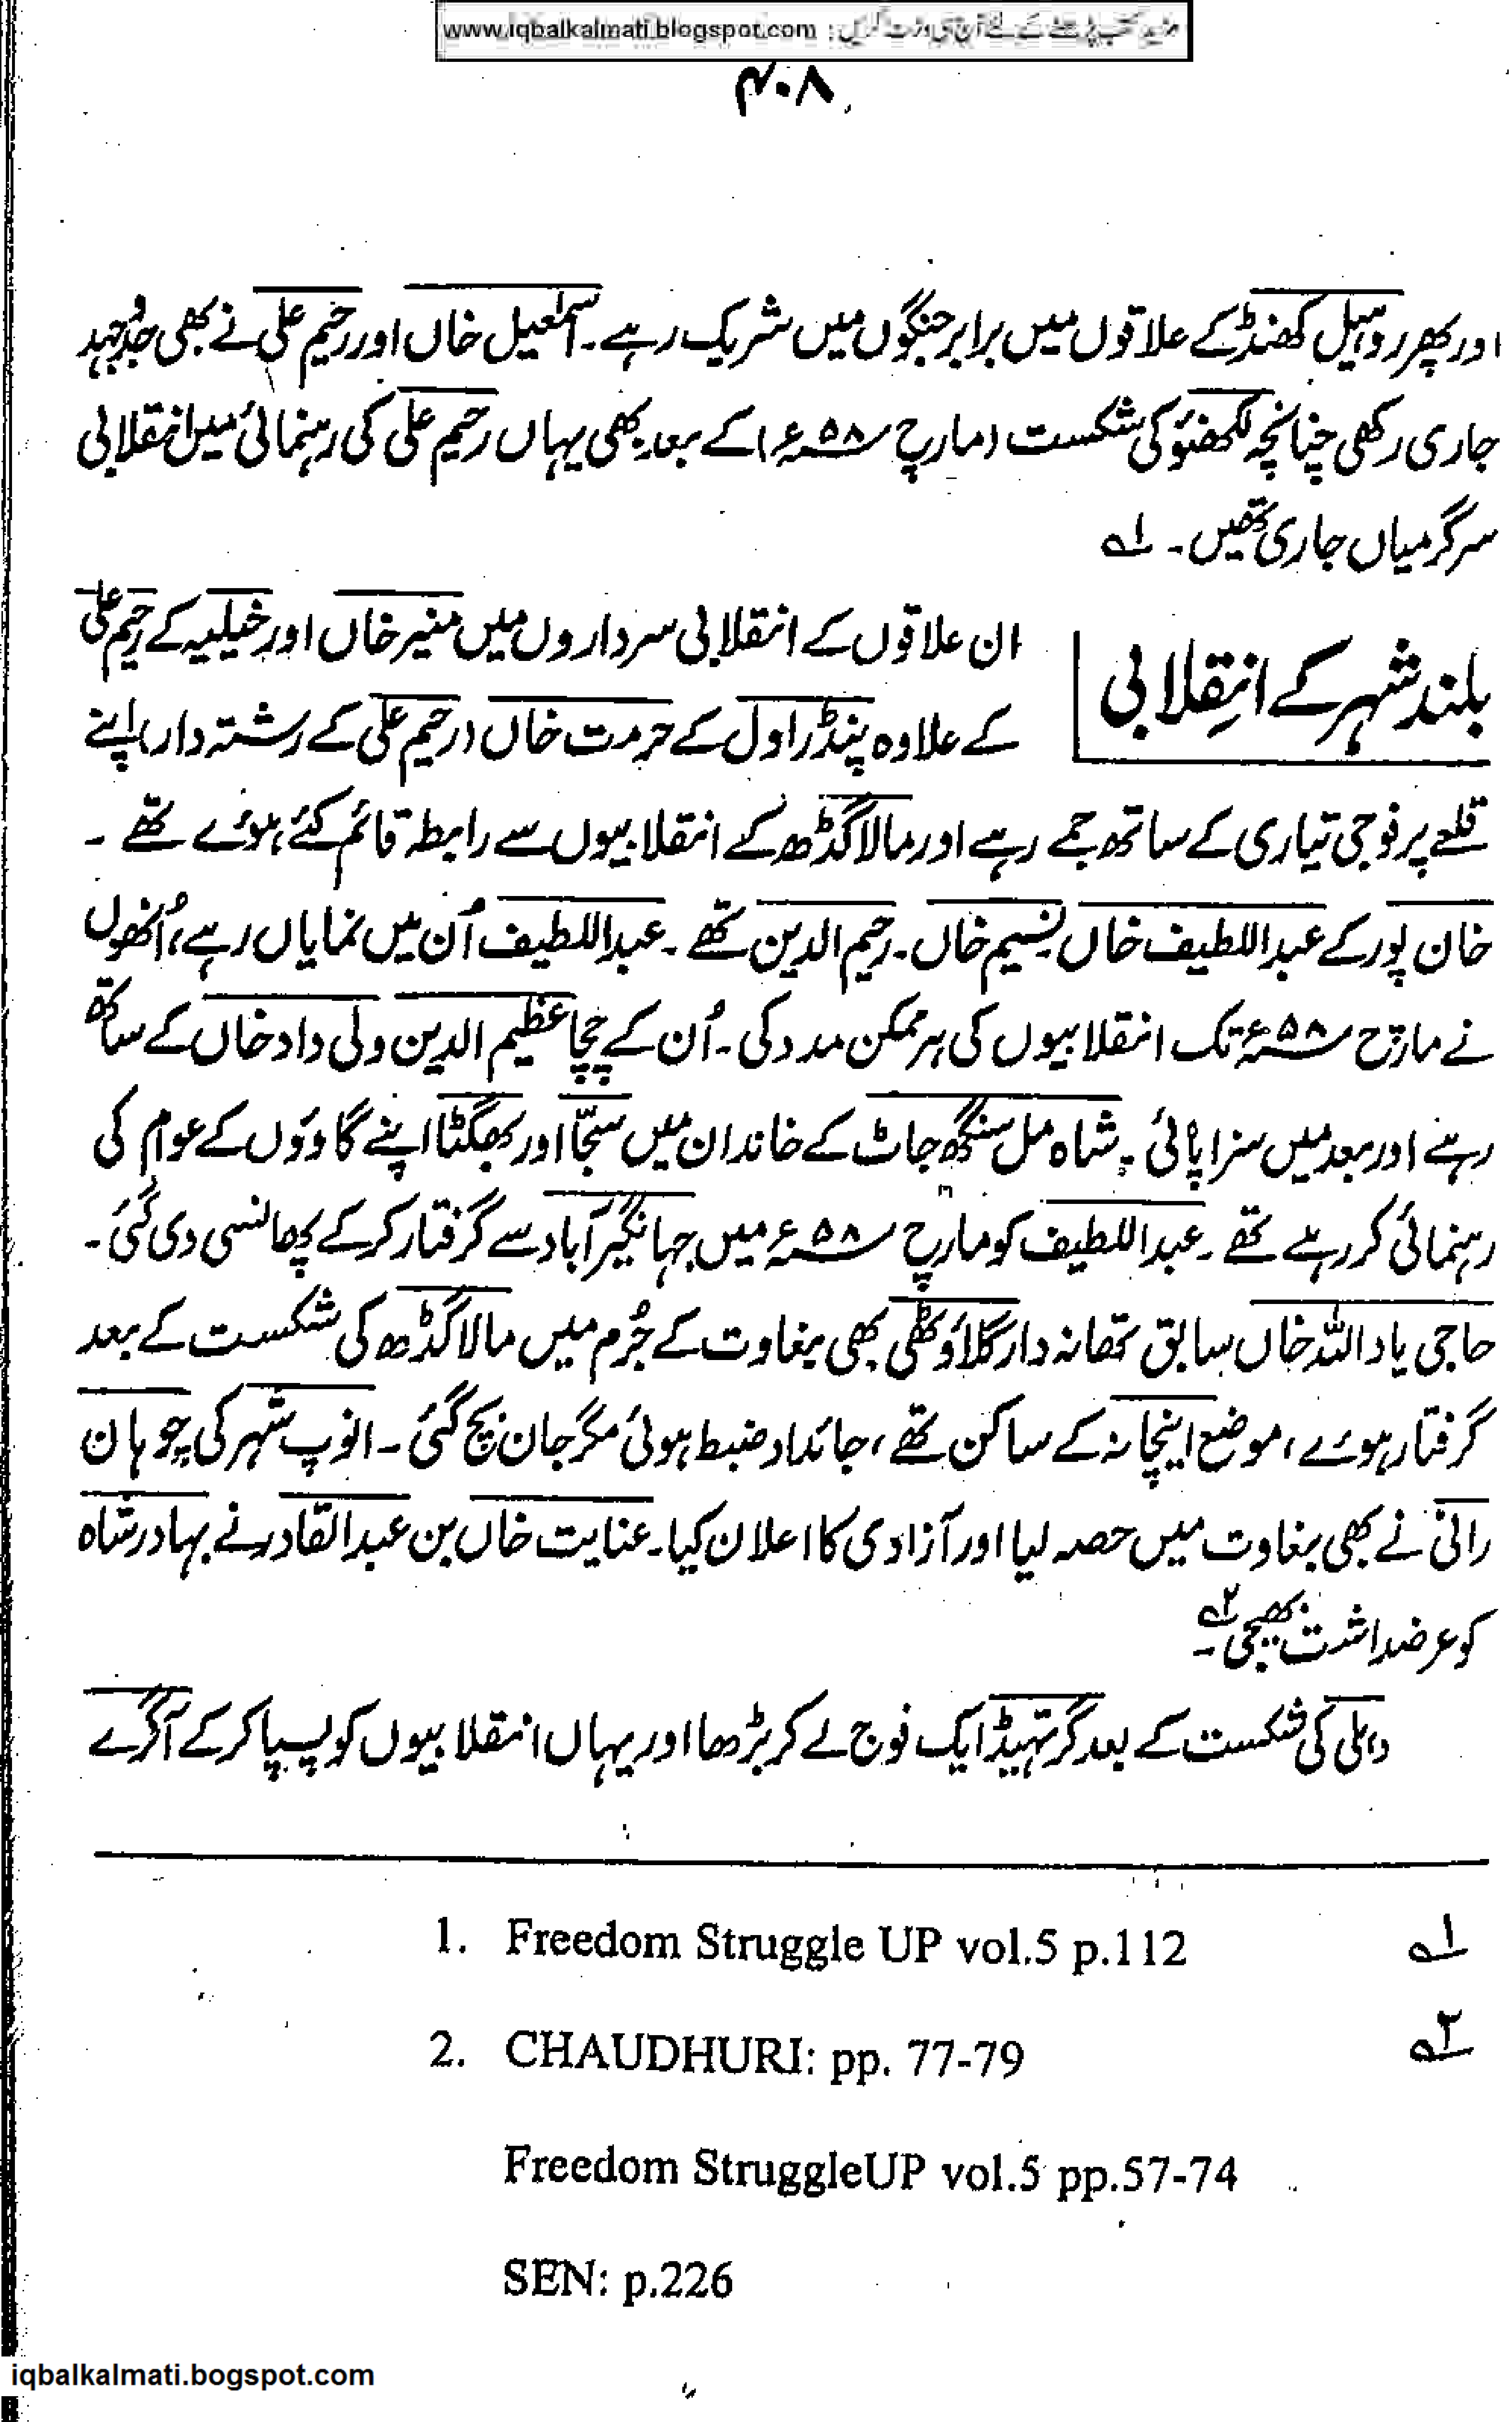 مزید کتب پڑھنے کے لئے آج ہی وزٹ کریں : www.iqbalkalmati.blogspot.com
۴۰۸
اور پھر روہیل کھنڈ کے علاقوں میں برابر جنگوں میں شریک رہے۔ اسمٰعیل خاں اور رحیم علی نے بھی جدوجہد
جاری رکھی چنانچہ لکھنؤ کی شکست (مارچ ۵۸ء) کے بعد بھی یہاں رحیم علی کی رہنمائی میں انقلابی
سرگرمیاں جاری تھیں۔ ۱ے
بلند شہر کے انقلابی
ان علاقوں کے انقلابی سرداروں میں منیر خاں اور خیلیہ کے رحیم علی
کے علاوہ پنڈراول کے حرمت خاں (رحیم علی کے رشتہ دار) اپنے
قلعے پر فوجی تیاری کے ساتھ جمے رہے اور مالاگڈھ کے انقلابیوں سے رابطہ قائم کئے ہوئے تھے ۔
خان پور کے عبداللطیف خاں نسیم خاں۔ رحیم الدین تھے ۔ عبداللطیف اُن میں نمایاں رہے، اُنھوں
نے مارچ ۵۸ء تک انقلابیوں کی ہر ممکن مدد کی۔ اُن کے چچا عظیم الدین ولی داد خاں کے ساتھ
رہے اور بعد میں سزا پائی ۔ شاہ مل سنگھ جاٹ کے خاندان میں سجّا اور بھگٹا اپنے گاووں کے عوام کی
رہنمائی کر رہے تھے ۔ عبداللطیف کو مارچ ۵۸ء میں جہانگیر آباد سے گرفتار کر کے پھانسی دی گئی ۔
حاجی یاد اللہ خاں سابق تھانہ دار گلاؤٹھی بھی بغاوت کے جُرم میں مالاگڈھ کی شکست کے بعد
گرفتار ہوئے، موضع اینچانہ کے ساکن تھے ، جائداد ضبط ہوئی مگر جان بچ گئی ۔ انوپ شہر کی چوہان
رانی نے بھی بغاوت میں حصہ لیا اور آزادی کا اعلان کیا۔ عنایت خاں بن عبدالقادر نے بہادر شاہ
کو عرضداشت بھیجی۔ ۲ے
دہلی کی شکست کے بعد گرتہیڈ ایک فوج لے کر بڑھا اور یہاں انقلابیوں کو پسپا کر کے آگرے
1. Freedom Struggle UP vol.5 p.112 ۱ے
2. CHAUDHURI: pp. 77-79 ۲ے
Freedom StruggleUP vol.5 pp.57-74
SEN: p.226
iqbalkalmati.bogspot.com